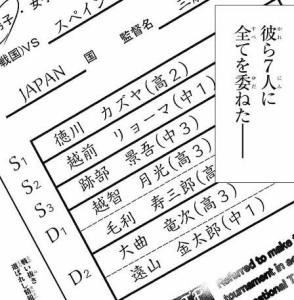 彼ら7人に
全てを委ねた――
男子
スペイン
戦国VS
監督名
JAPAN 国
S1 徳川 カズヤ(高2)
S2 越前 リョーマ(中1)
S3 跡部 景吾(中3)
D1 越智 月光(高3)
毛利 寿三郎(高
D2 大曲 竜次(高3)
遠山 金太郎(中1)
Referred to make
ournament in